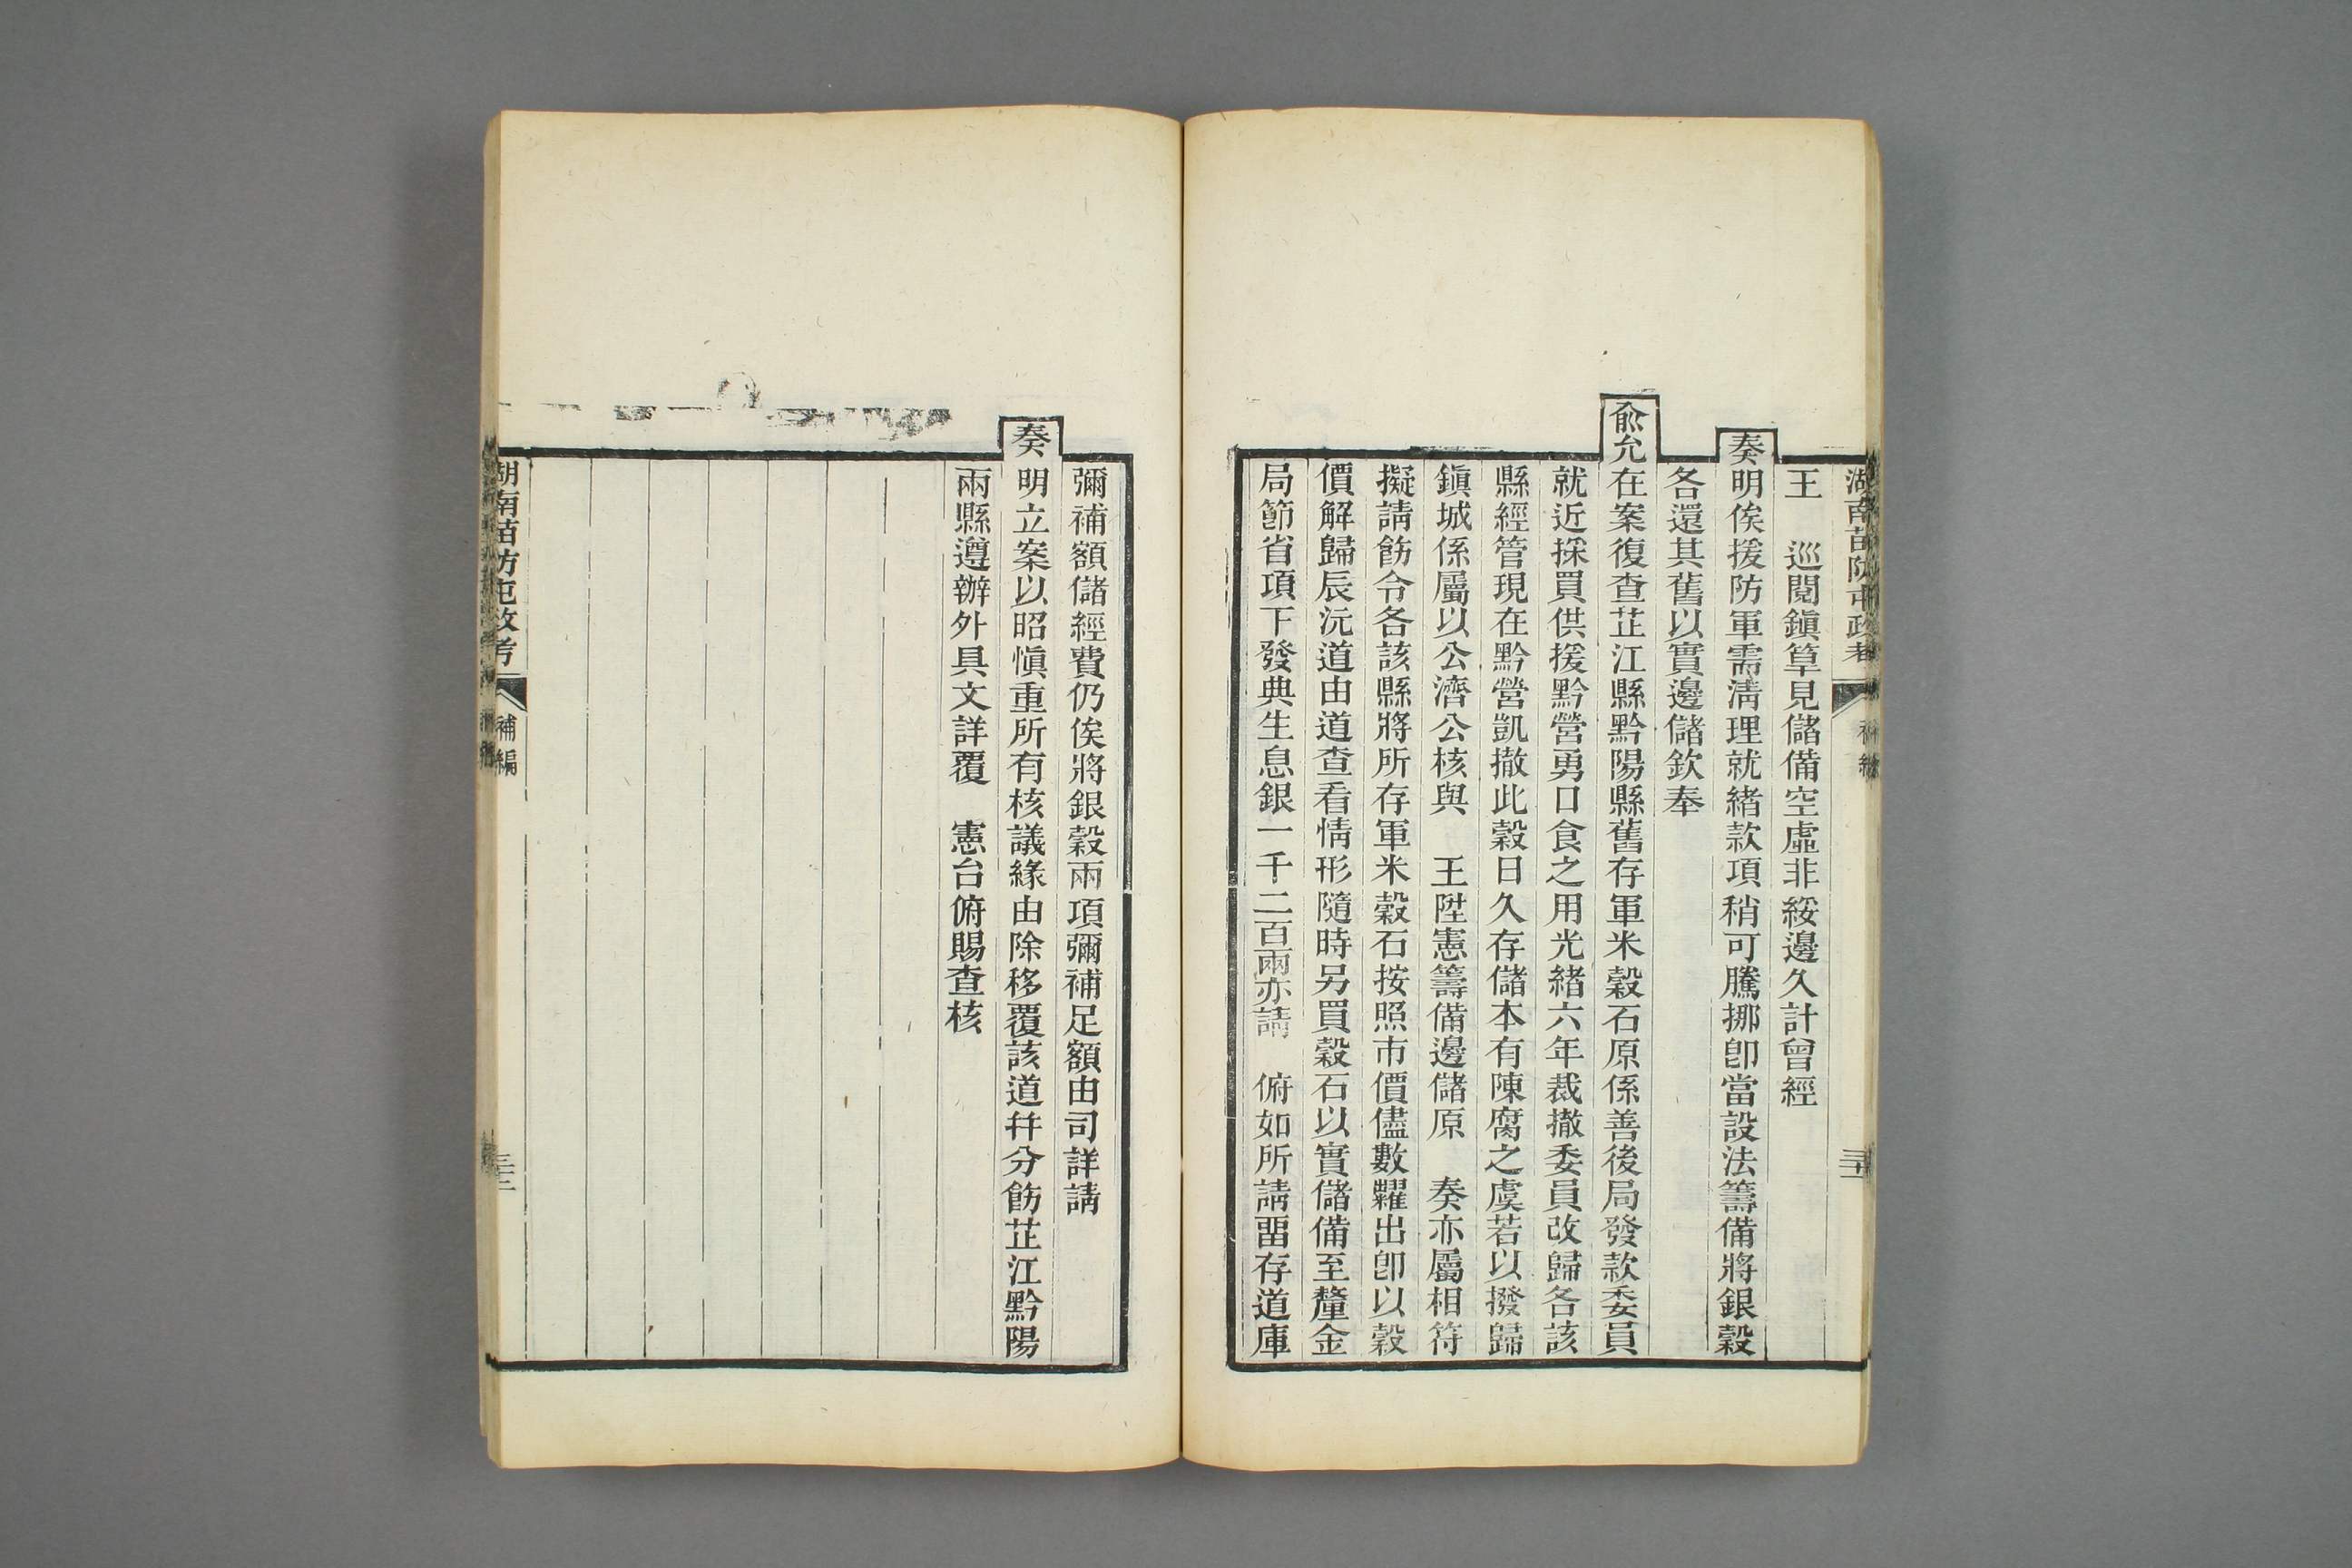 湖南苗防屯政考
補編
三十一
王　巡閱鎭筸見儲備空虛非綏邊久計曾經
奏明俟援防軍需淸理就緒款項稍可騰挪卽當設法籌備將銀穀
各還其舊以實邊儲欽奉
俞允在案復查芷江縣黔陽縣舊存軍米穀石原係善後局發款委員
就近採買供援黔營勇口食之用光緒六年裁撤委員改歸各該
縣經管現在黔營凱撤此穀日久存儲本有陳腐之虞若以撥歸
鎭城係屬以公濟公核與　王陞憲籌備邊儲原　奏亦屬相符
擬請飭令各該縣將所存軍米穀石按照市價儘數糶出卽以穀
價解歸辰沅道由道查看情形隨時另買穀石以實儲備至釐金
局節省項下發典生息銀一千二百兩亦請　俯如所請畱存道庫
彌補額儲經費仍俟將銀穀兩項彌補足額由司詳請
奏明立案以昭愼重所有核議緣由除移覆該道幷分飭芷江黔陽
兩縣遵辦外具文詳覆　憲台俯賜查核
湖南苗防屯政考
補編
三十二